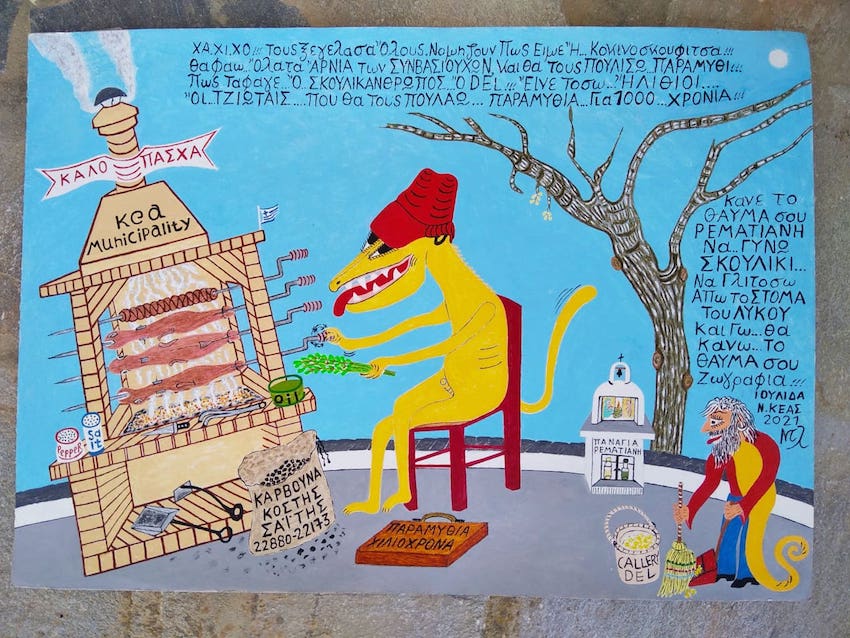 ΧΑ.ΧΙ.ΧΟ!!! ΤΟΥς ΞΕΓΕΛΑΣΑ ΌΛΟΥς. ΝΟΜΗΖΟΥΝ Πως Είμε Ή... ΚΟΚΙΝΟΣΚΟΥΦΙΤΣΑ!!!
ΘΑ ΦΑω ΌΛΑ ΤΑ ΆΡΝΙΑ των ΣΥΝΒΑΣΙΟΥΧΩΝ, Και θα ΤΟΥς ΠΟΥΛΙΣω... ΠΑΡΑΜΥΘΙ!!!
Πως ΤΑΦΑΓΕ... Ό... ΣΚΟΥΛΙΚΑΝΘΡΩΠΟΣ... Ό DEL!!! Είνε Τοσω... ΉΛΙΘΙΟΙ....
ΟΙ... ΤΖΙΩΤΑΙΣ.... Που θα τους ΠΟΥΛΑω.... ΠΑΡΑΜΥΘΙΑ... Για 1000... ΧΡΟΝΙΑ!!!
ΚΑΛΟ ΠΑΣΧΑ
Kea
Municipality
Κανε ΤΟ
ΘΑΥΜΑ σου
ΡΕΜΑΤΙΑΝΗ
Να.. ΓΥΝΩ
ΣΚΟΥΛΙΚΙ...
Να Γλιτοσω
Απω το ΣΤΟΜΑ
Του ΛΥΚΟΥ
Και Γω... θα
Κανω... ΤΟ
ΘΑΥΜΑ σου
Ζωγραφια!!!
ΙΟΥΛΙΔΑ
Ν. ΚΕΑΣ
2021
OiL
Pepper
Salt
ΚΑΡΒΟΥΝΑ
ΚΩΣΤΗΣ
ΣΑΪΤΗΣ
22880-22173
ΠΑΡΑΜΥΘΙΑ
ΧΙΛΙΟΧΡΟΝΑ
ΠΑΝΑΓΙΑ
ΡΕΜΑΤΙΑΝΗ
CALLERY
DEL